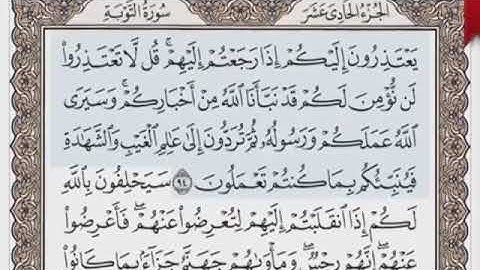 الجزء الحادي عشر
سورة التوبة
يَعْتَذِرُونَ إِلَيْكُمْ إِذَا رَجَعْتُمْ إِلَيْهِمْ ۚ قُل لَّا تَعْتَذِرُوا۟
لَن نُّؤْمِنَ لَكُمْ قَدْ نَبَّأَنَا ٱللَّهُ مِنْ أَخْبَارِكُمْ ۚ وَسَيَرَى
ٱللَّهُ عَمَلَكُمْ وَرَسُولُهُۥ ثُمَّ تُرَدُّونَ إِلَىٰ عَٰلِمِ ٱلْغَيْبِ وَٱلشَّهَٰدَةِ
فَيُنَبِّئُكُم بِمَا كُنتُمْ تَعْمَلُونَ ٩٤ سَيَحْلِفُونَ بِٱللَّهِ
لَكُمْ إِذَا ٱنقَلَبْتُمْ إِلَيْهِمْ لِتُعْرِضُوا۟ عَنْهُمْ ۖ فَأَعْرِضُوا۟
عَنْهُمْ ۖ إِنَّهُمْ رِجْسٌ ۖ وَمَأْوَىٰهُمْ جَهَنَّمُ جَزَآءًۢ بِمَا كَانُوا۟